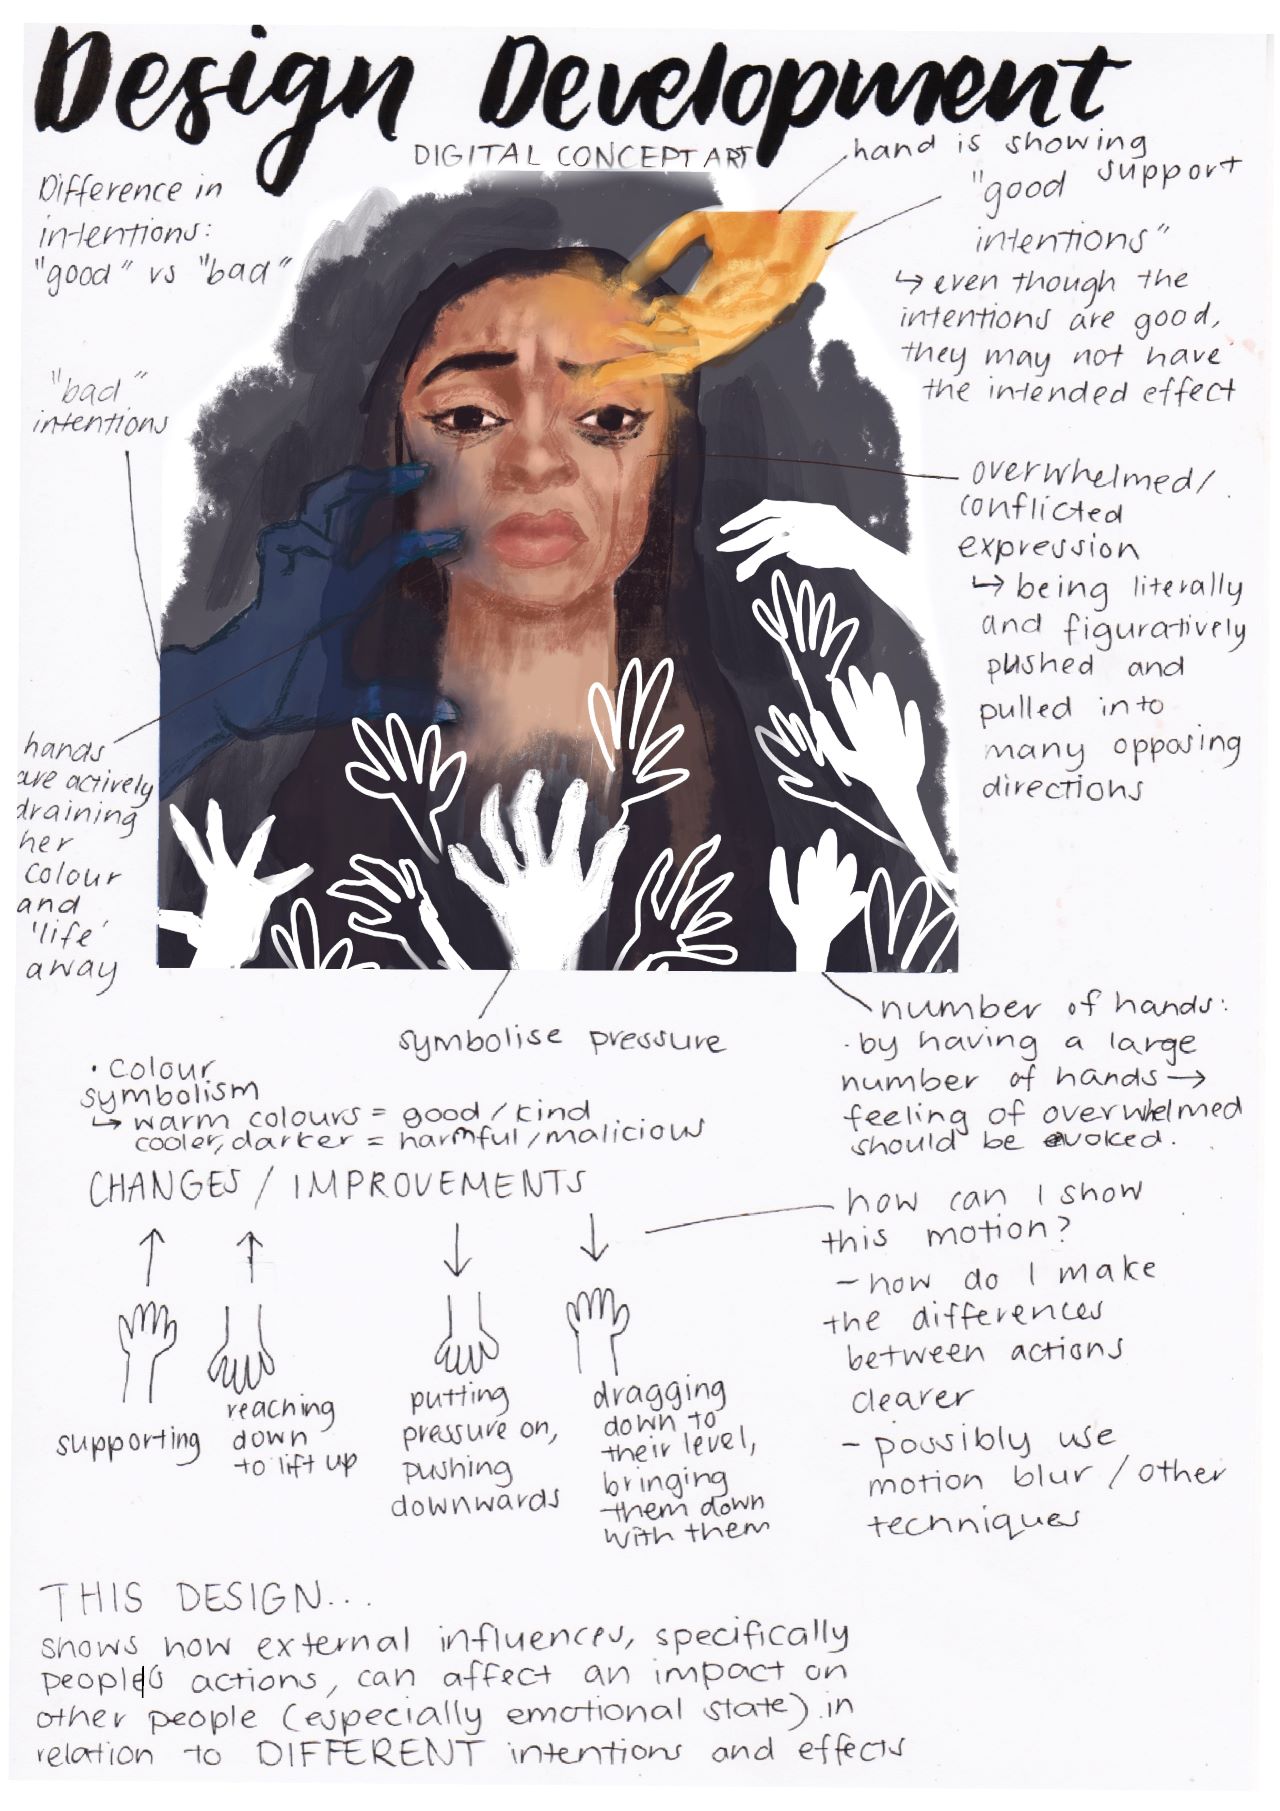 Design Development
DIGITAL CONCEPT ART
Difference in
intentions:
"good" vs "bad"
"bad"
intentions
hands
are actively
draining
her
colour
and
'life'
away
hand is showing
support
"good
intentions"
↳ even though the
intentions are good,
they may not have
the intended effect
overwhelmed/
conflicted
expression
↳ being literally
and figuratively
pushed and
pulled into
many opposing
directions
symbolise pressure
number of hands:
· by having a large
number of hands →
feeling of overwhelmed
should be evoked.
• colour
symbolism
↳ warm colours = good/kind
cooler, darker = harmful/malicious
CHANGES / IMPROVEMENTS
supporting
reaching
down
to lift up
putting
pressure on,
pushing
downwards
dragging
down to
their level,
bringing
them down
with them
how can I show
this motion?
- how do I make
the differences
between actions
clearer
- possibly use
motion blur / other
techniques
THIS DESIGN...
shows how external influences, specifically
people's actions, can affect an impact on
other people (especially emotional state) in
relation to DIFFERENT intentions and effects